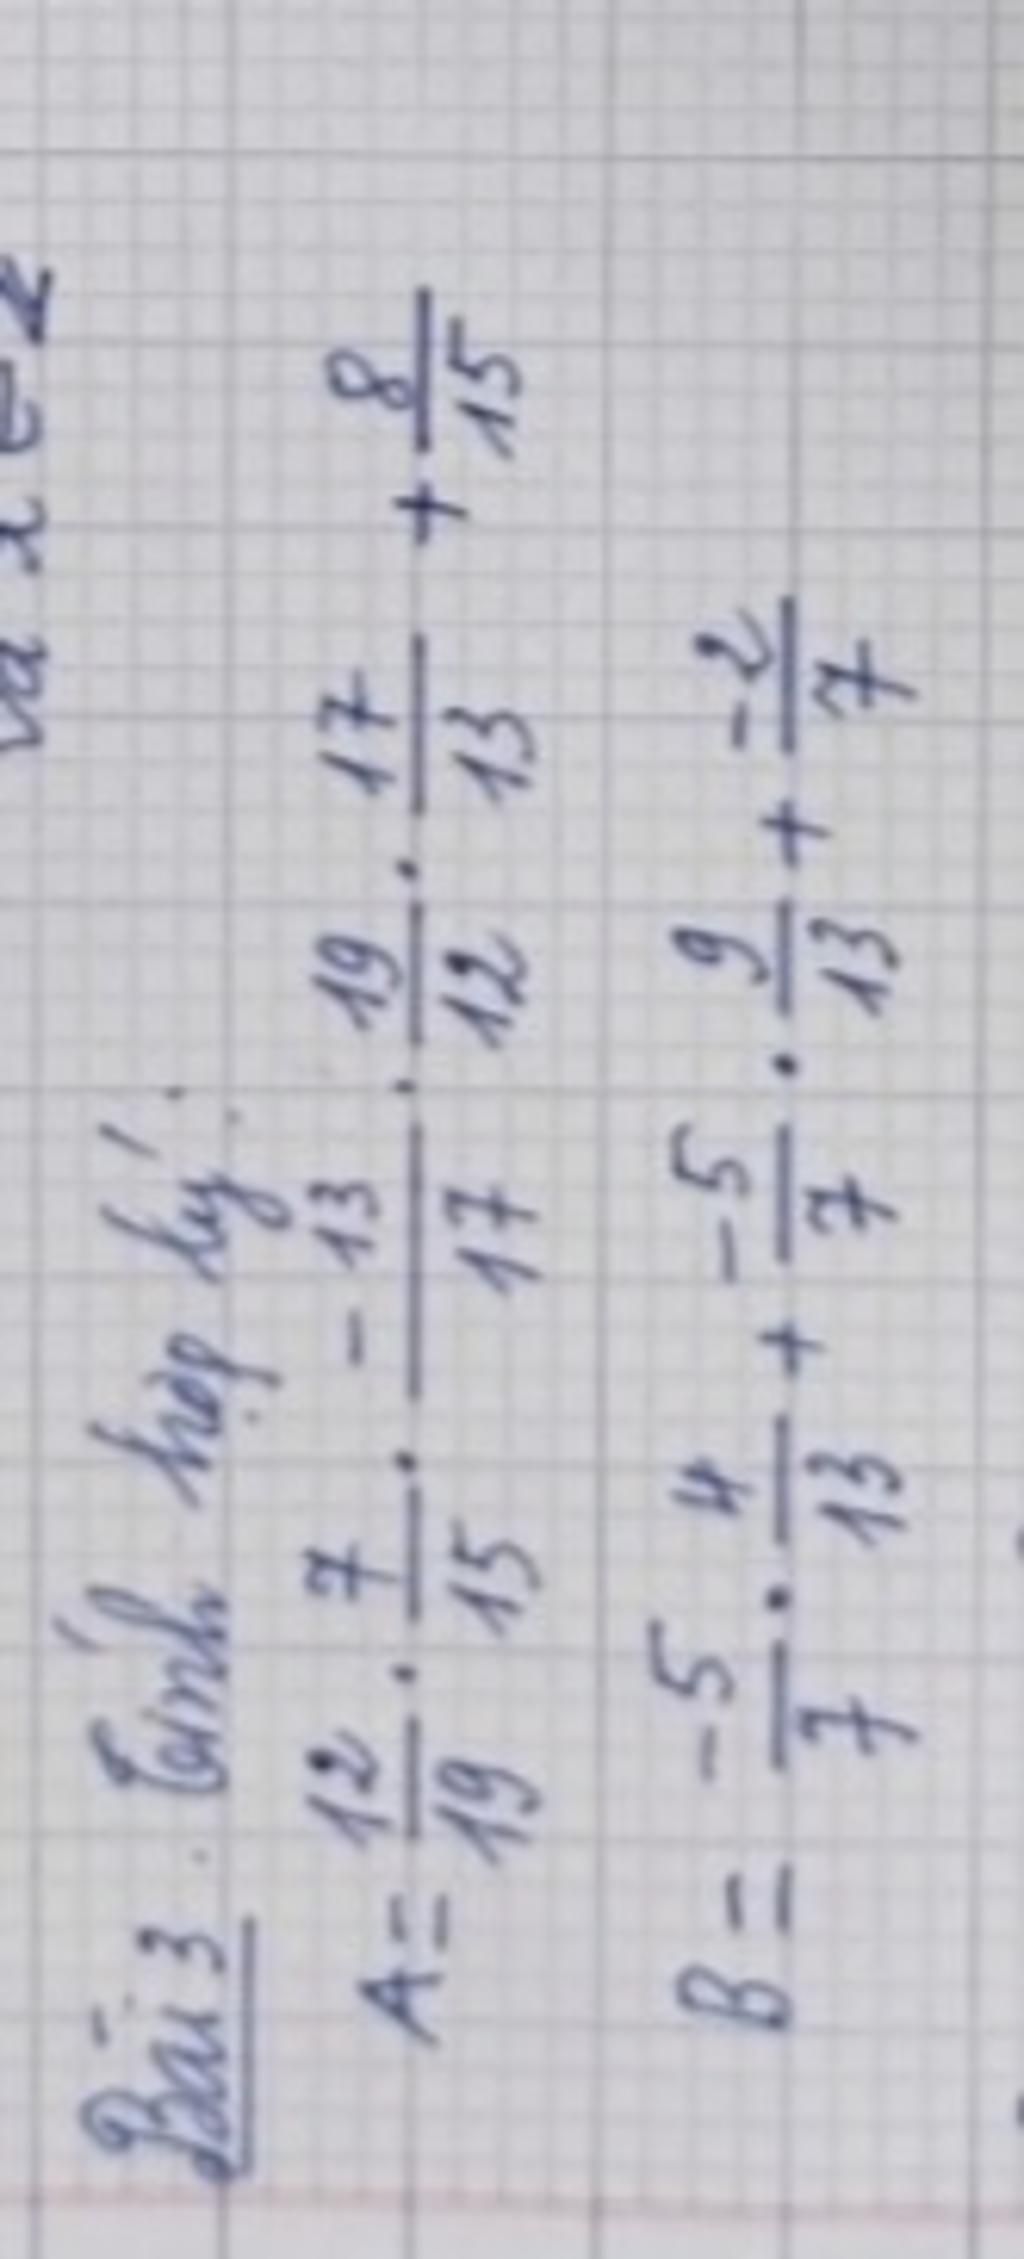 và x ∈ Z
Bài 3. Tính hợp lý:
A = 12/19 . 7/15 . -13/17 . 19/12 . 17/13 + 8/15
B = -5/7 . 4/13 + -5/7 . 9/13 + -2/7